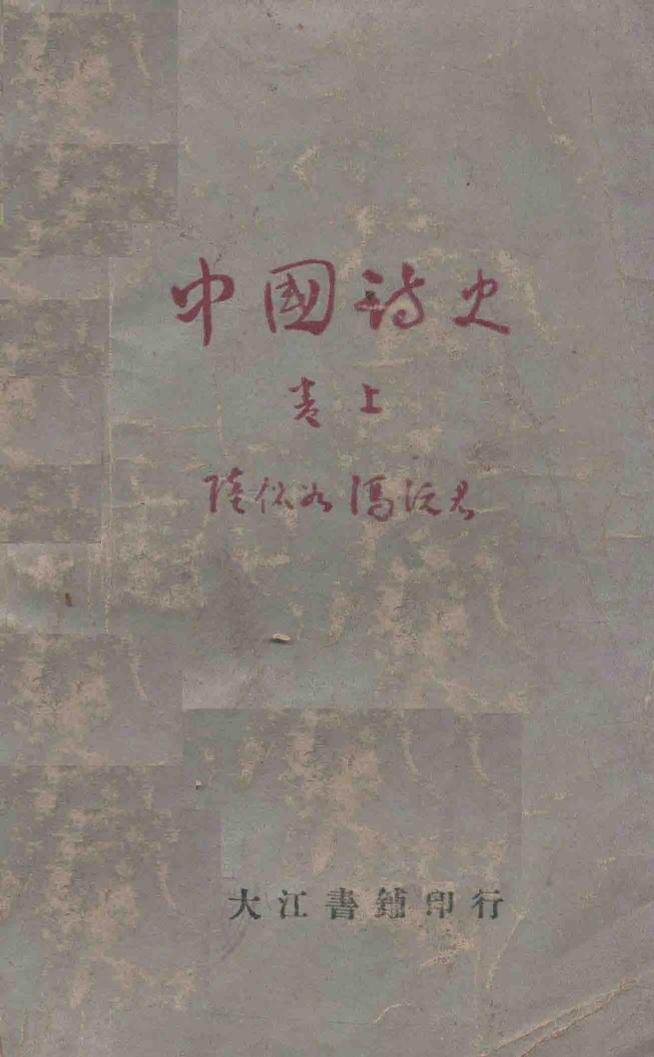 中國詩史
卷上
陸侃如 馮沅君
大江書鋪印行